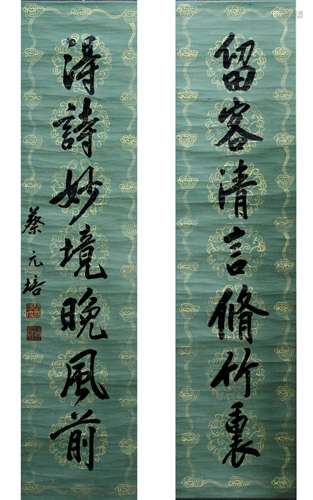 留客清言脩竹裏
淂詩妙境晚風前
蔡元培